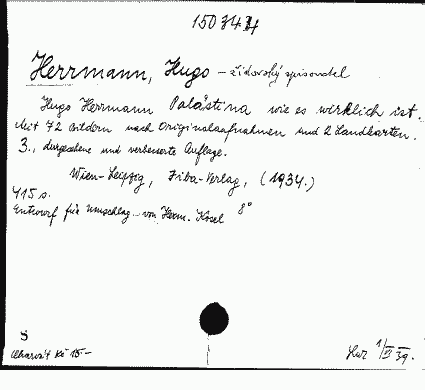 150344
Herrmann, Hugo – židovský spisovatel
Hugo Herrmann Palästina wie es wirklich ist.
Mit 72 Bildern nach Originalaufnahmen und 2 Landkarten.
3., durgesehene und verbesserte Auflage.
Wien-Leipzig, Fiba-Verlag, (1934.)
415 s. 8°
Entworf für Umschlag von Herm. Kosel
S
Charvát Kč 15.–
39.